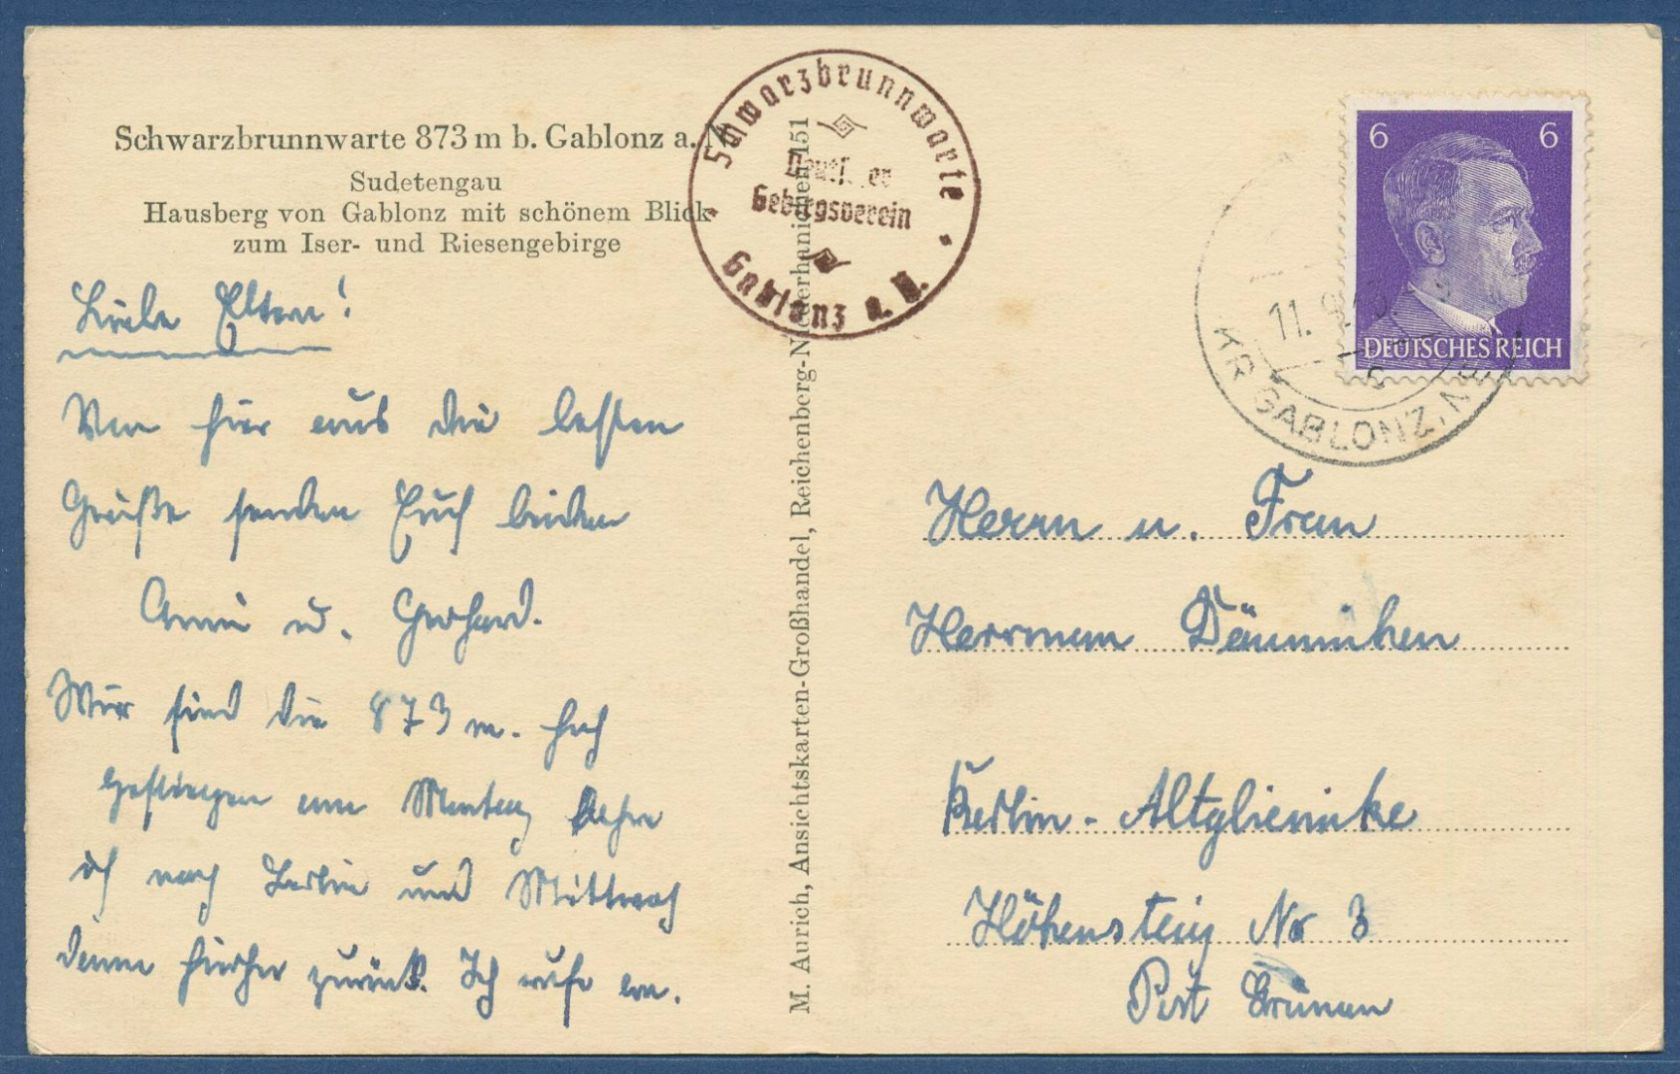 Schwarzbrunnwarte 873 m b. Gablonz a. N
Sudetengau
Hausberg von Gablonz mit schönem Blick
zum Iser- und Riesengebirge
Liebe Eltern!
Von hier aus die besten
Grüße senden Euch beiden
Anni u. Gerhard.
Wir sind die 873 m. hoch
gestiegen am Montag fahre
ich nach Berlin und Mittwoch
dann hierher zurück. Ich rufe an.
Schwarzbrunnwarte
Deutscher
Gebirgsverein
Gablonz a. N.
M. Aurich, Ansichtskarten-Großhandel, Reichenberg-Niederhanichen 151
6 6
DEUTSCHES REICH
11. 9.
KR GABLONZ, N
Herrn u. Frau
Herrmann Dännichen
Berlin - Altglienicke
Höhensteig No 3
Post Grünau